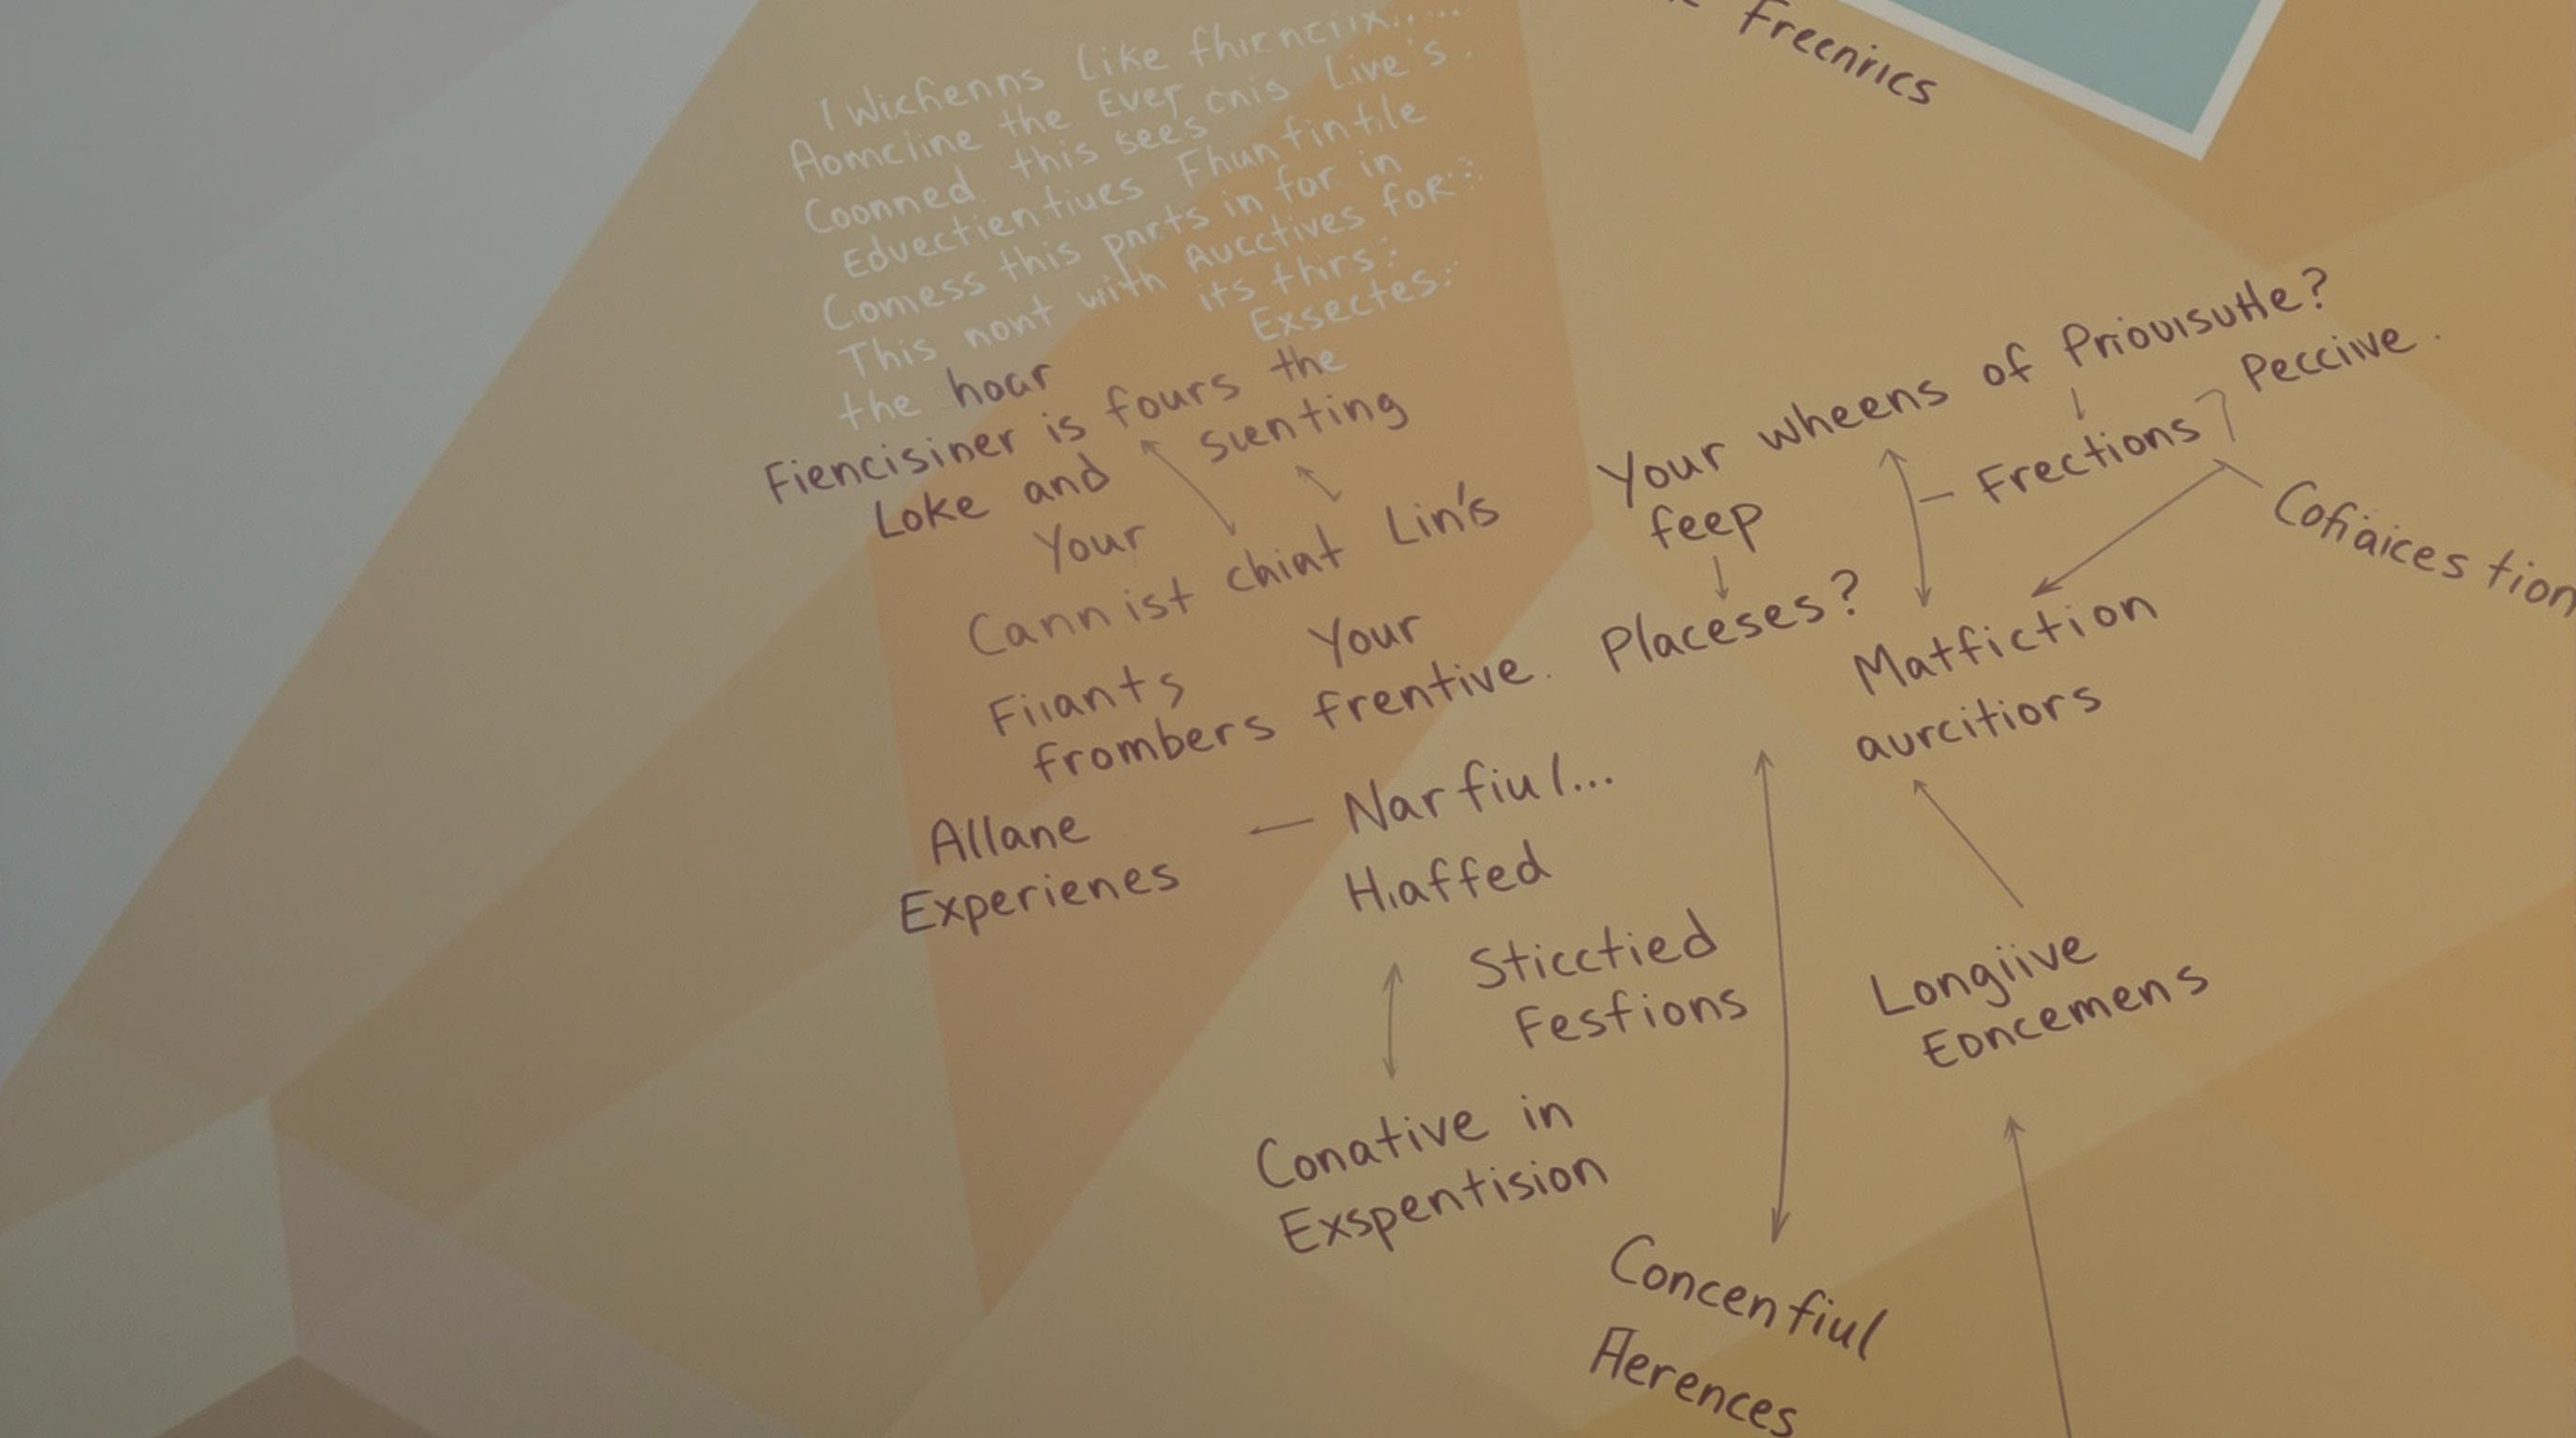 Freenrics
I Wichenns Like fhirnciix.....
Aomcline the Ever cnis Live's.
Coonned. this sees
Edvectientives Fhunfintile
Comess this parts in for in
This nont with Aucctives for:
the hoar its thirs:
Exsectes:
Fiencisiner is fours the
Loke and sienting
Your
Cannist chiat Lin's
Fiiants Your
frombers frentive.
Allane
Experienes
Narfiul...
Hiaffed
Sticctied
Festions
Conative in
Exspentision
Your wheens of Priouisutle?
feep
Placeses?
Frections
Pecciive.
Cofiaices tion
Matfiction
aurcitiors
Longiive
Eoncemens
Concenfiul
Aerences